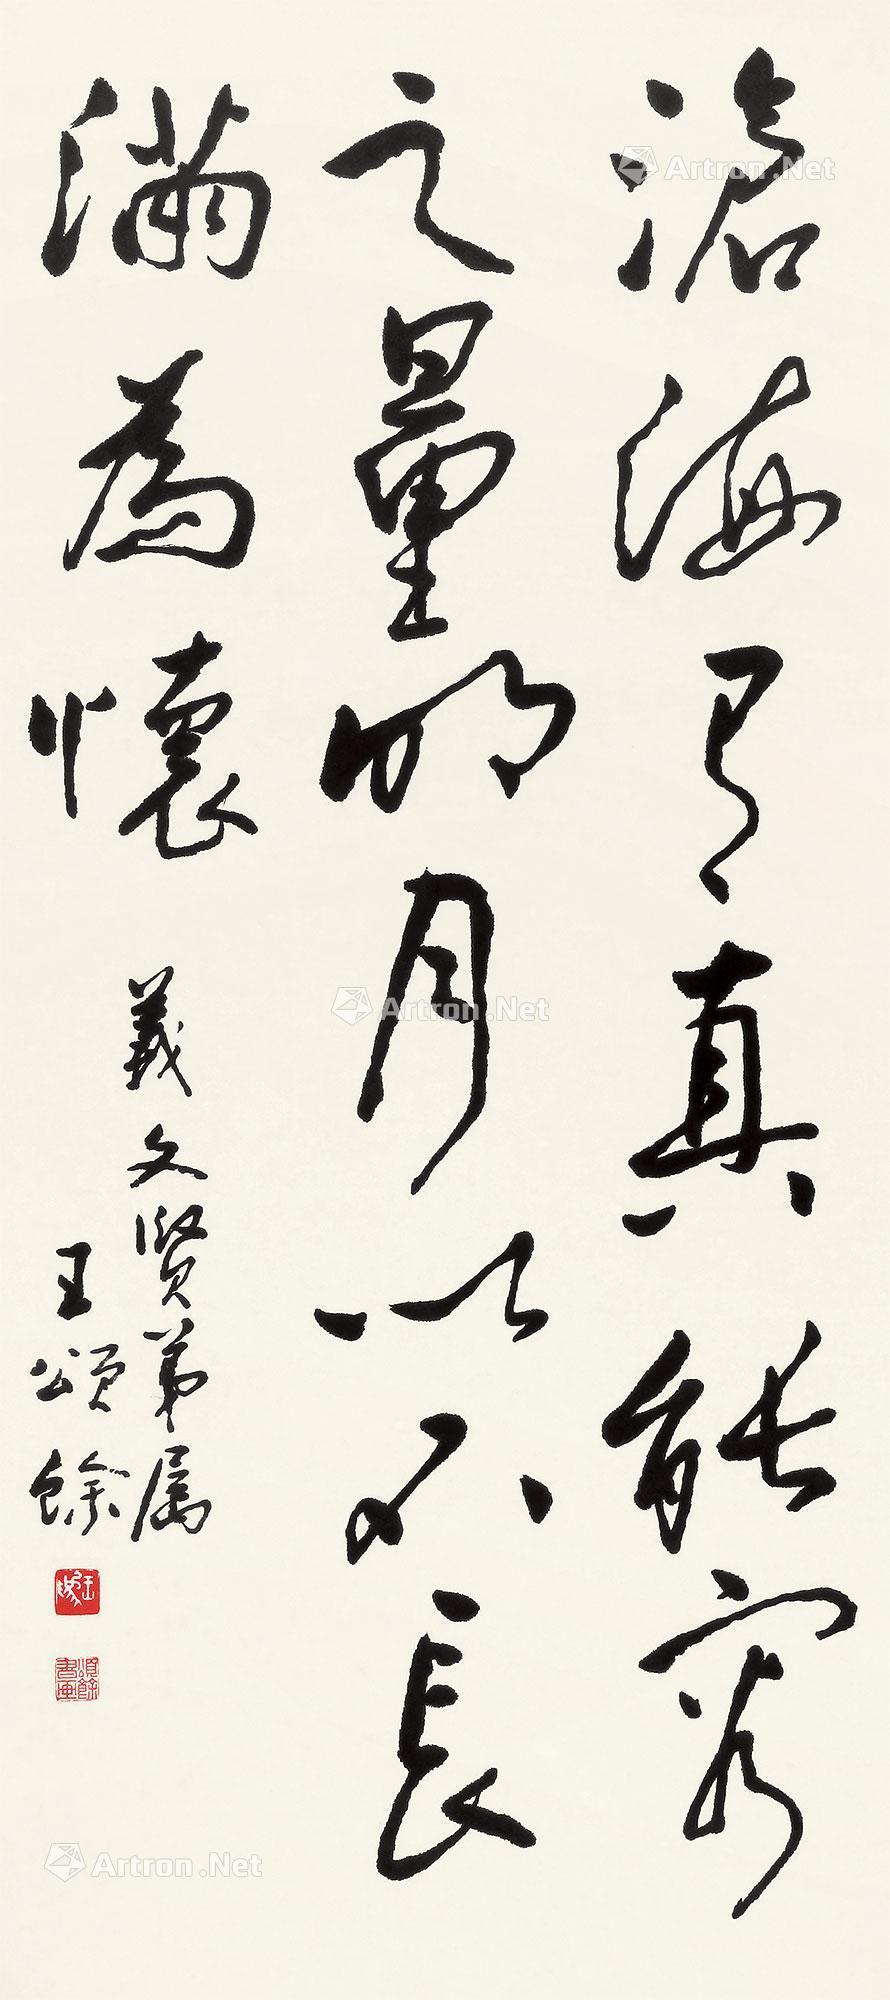 滄海有真能容
之量明月以不長
滿為懷
義文賢弟属
王頌餘
頌餘書画
Artron.Net
Artron.Net
Artron.Net